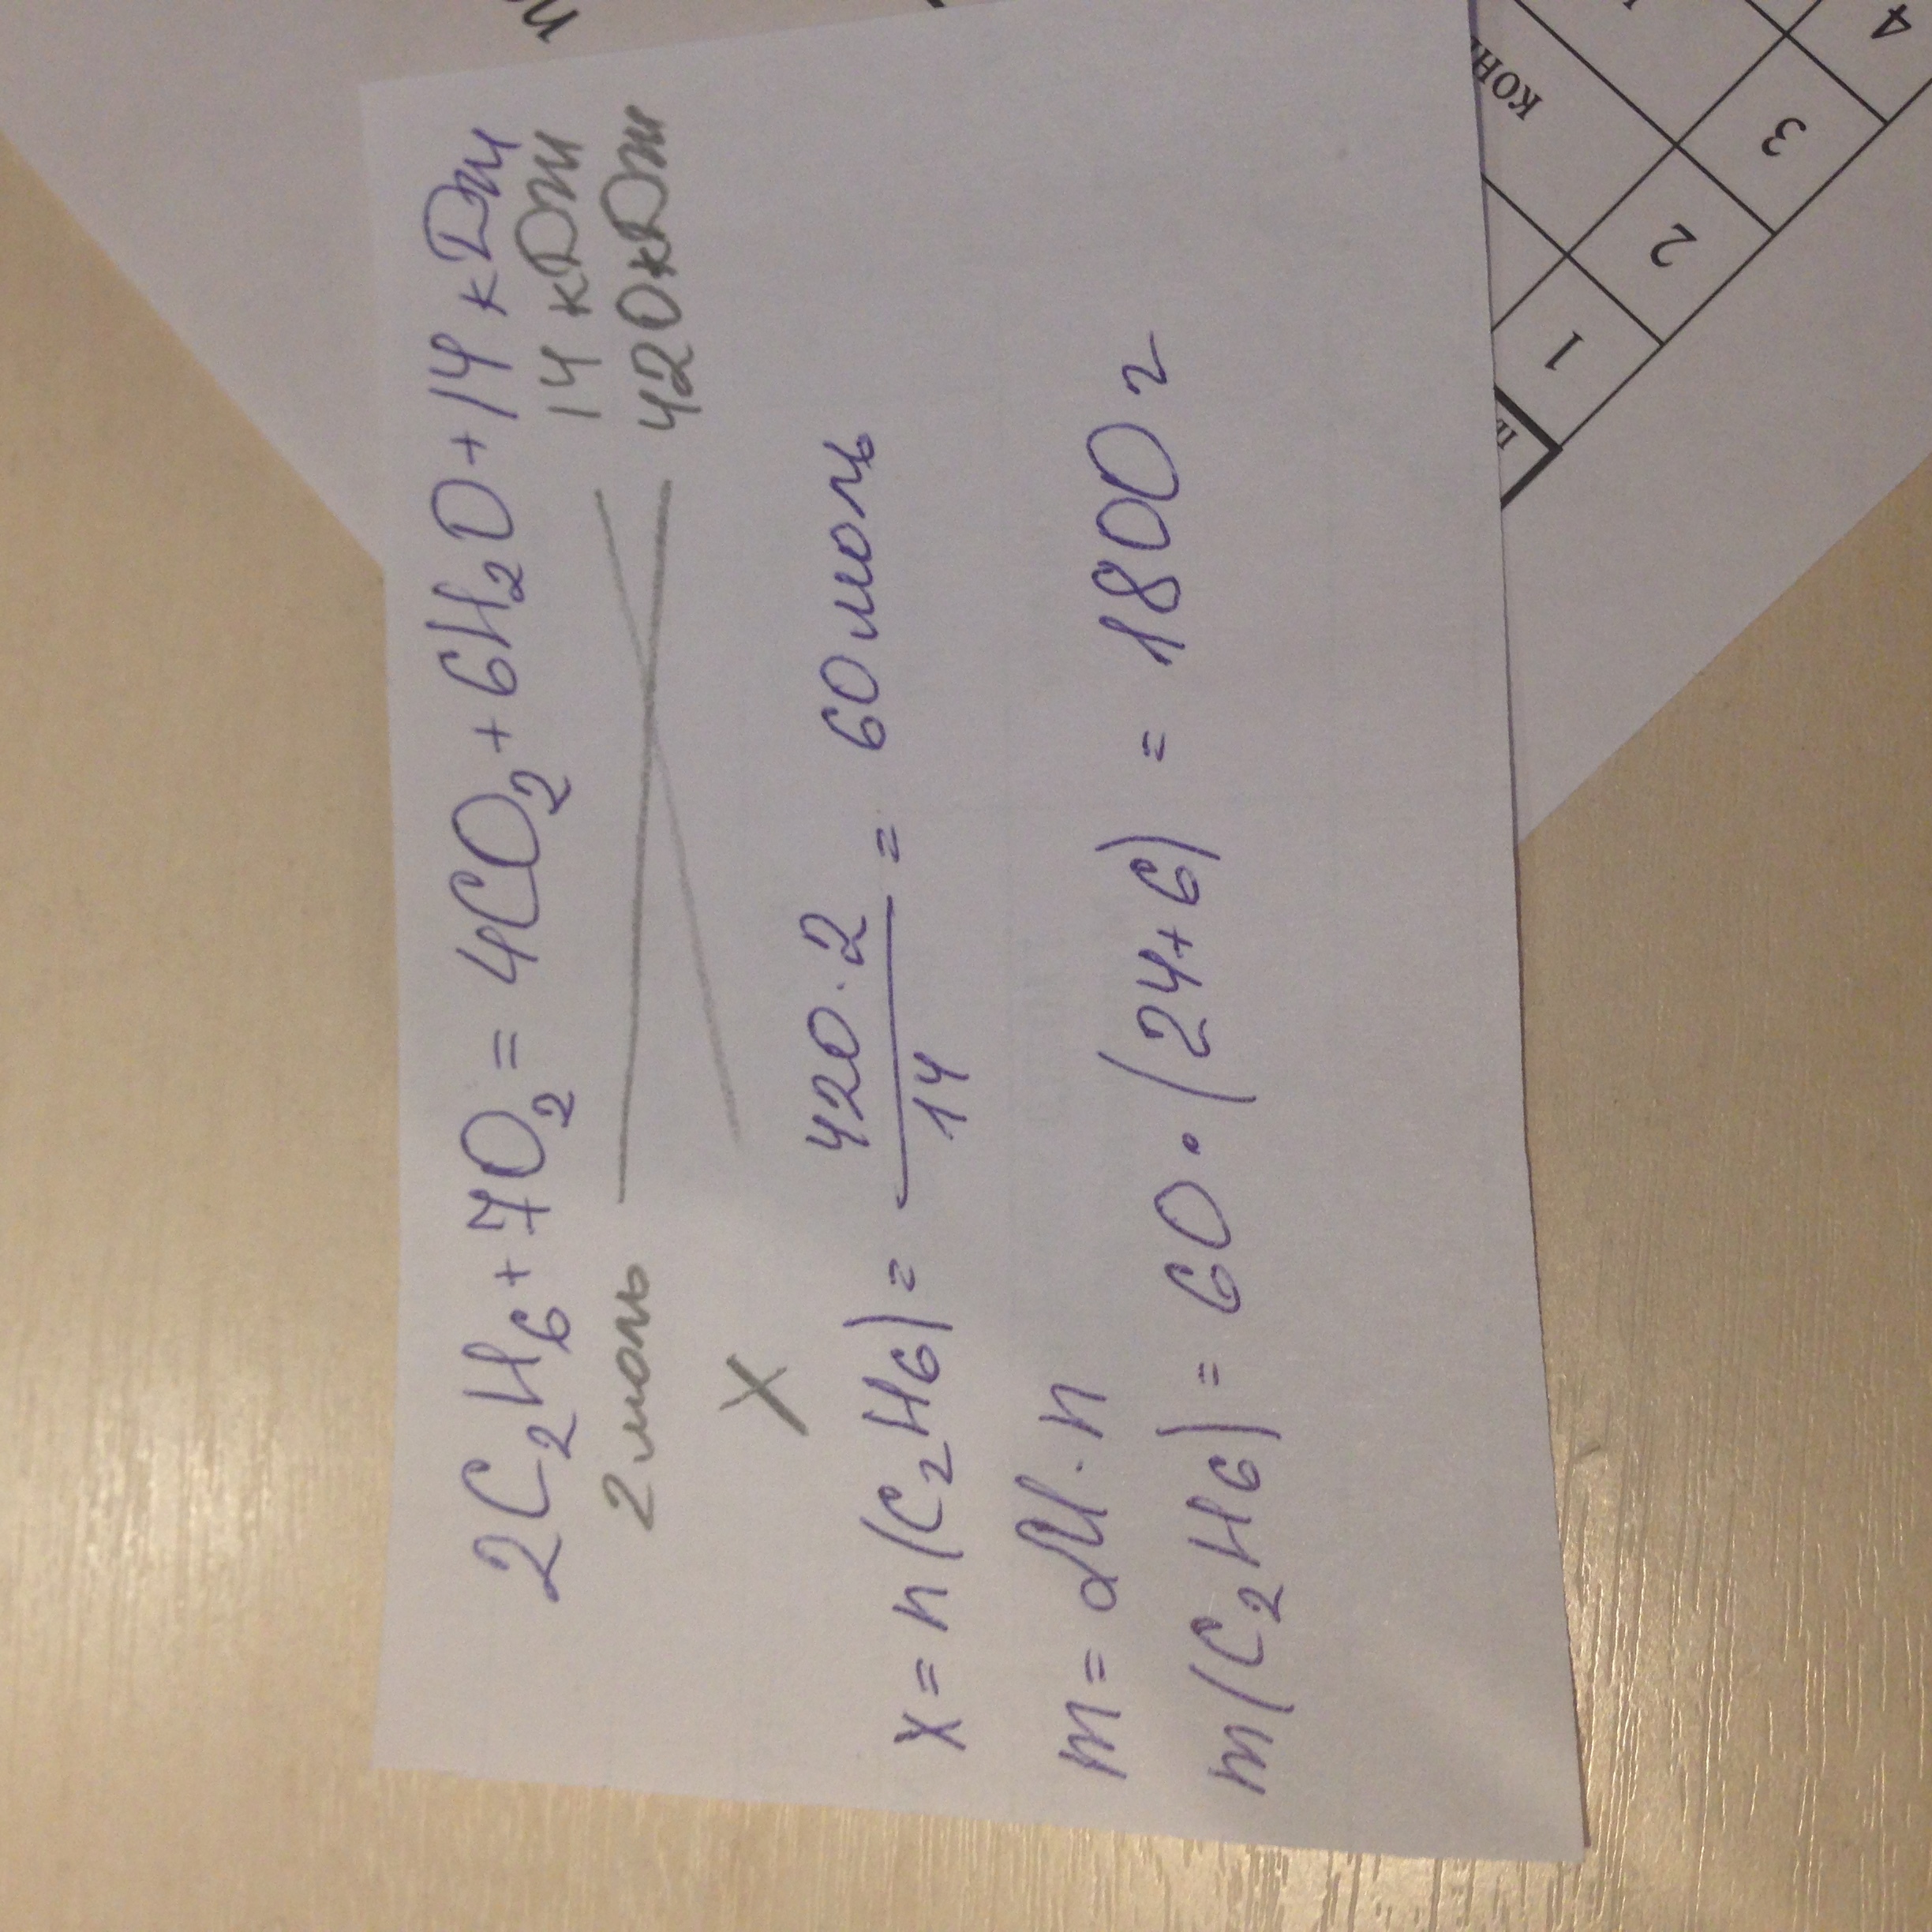 2C₂H₆ + 7O₂ = 4CO₂ + 6H₂O + 14 кДж
2 моль 14 кДж
X 420 кДж
x = n(C₂H₆) = 420·2/14 = 60 моль
m = M·n
m(C₂H₆) = 60·(24+6) = 1800 г
1 2 3 4